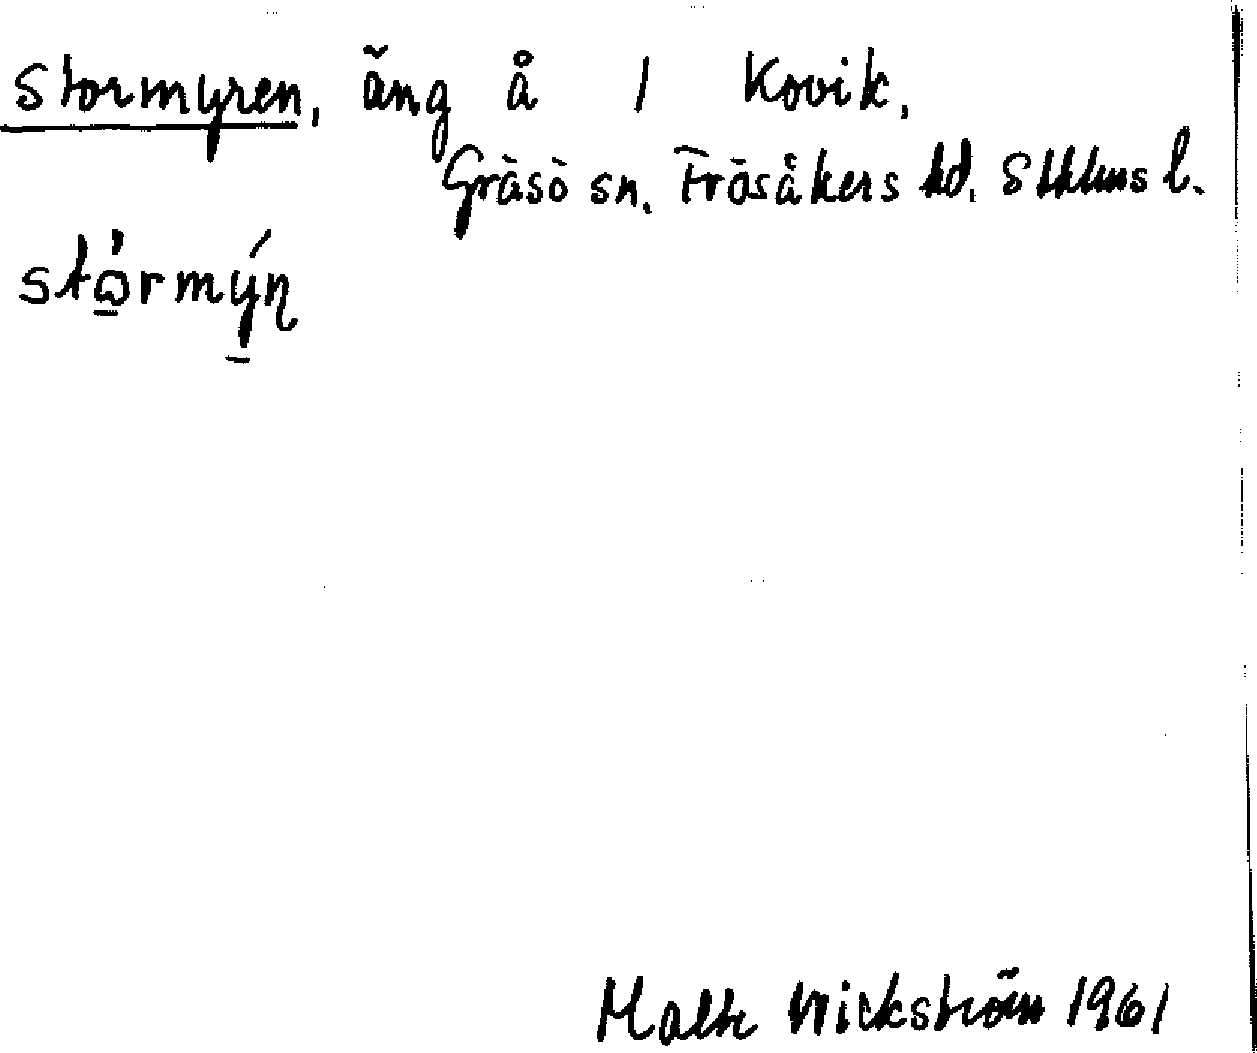 Stormyren, äng å 1 Kovik,
Gräsö sn. Frösåkers hd. Sthlms l.
stώ̲rmý̲ɳ
Malte Wickström 1961